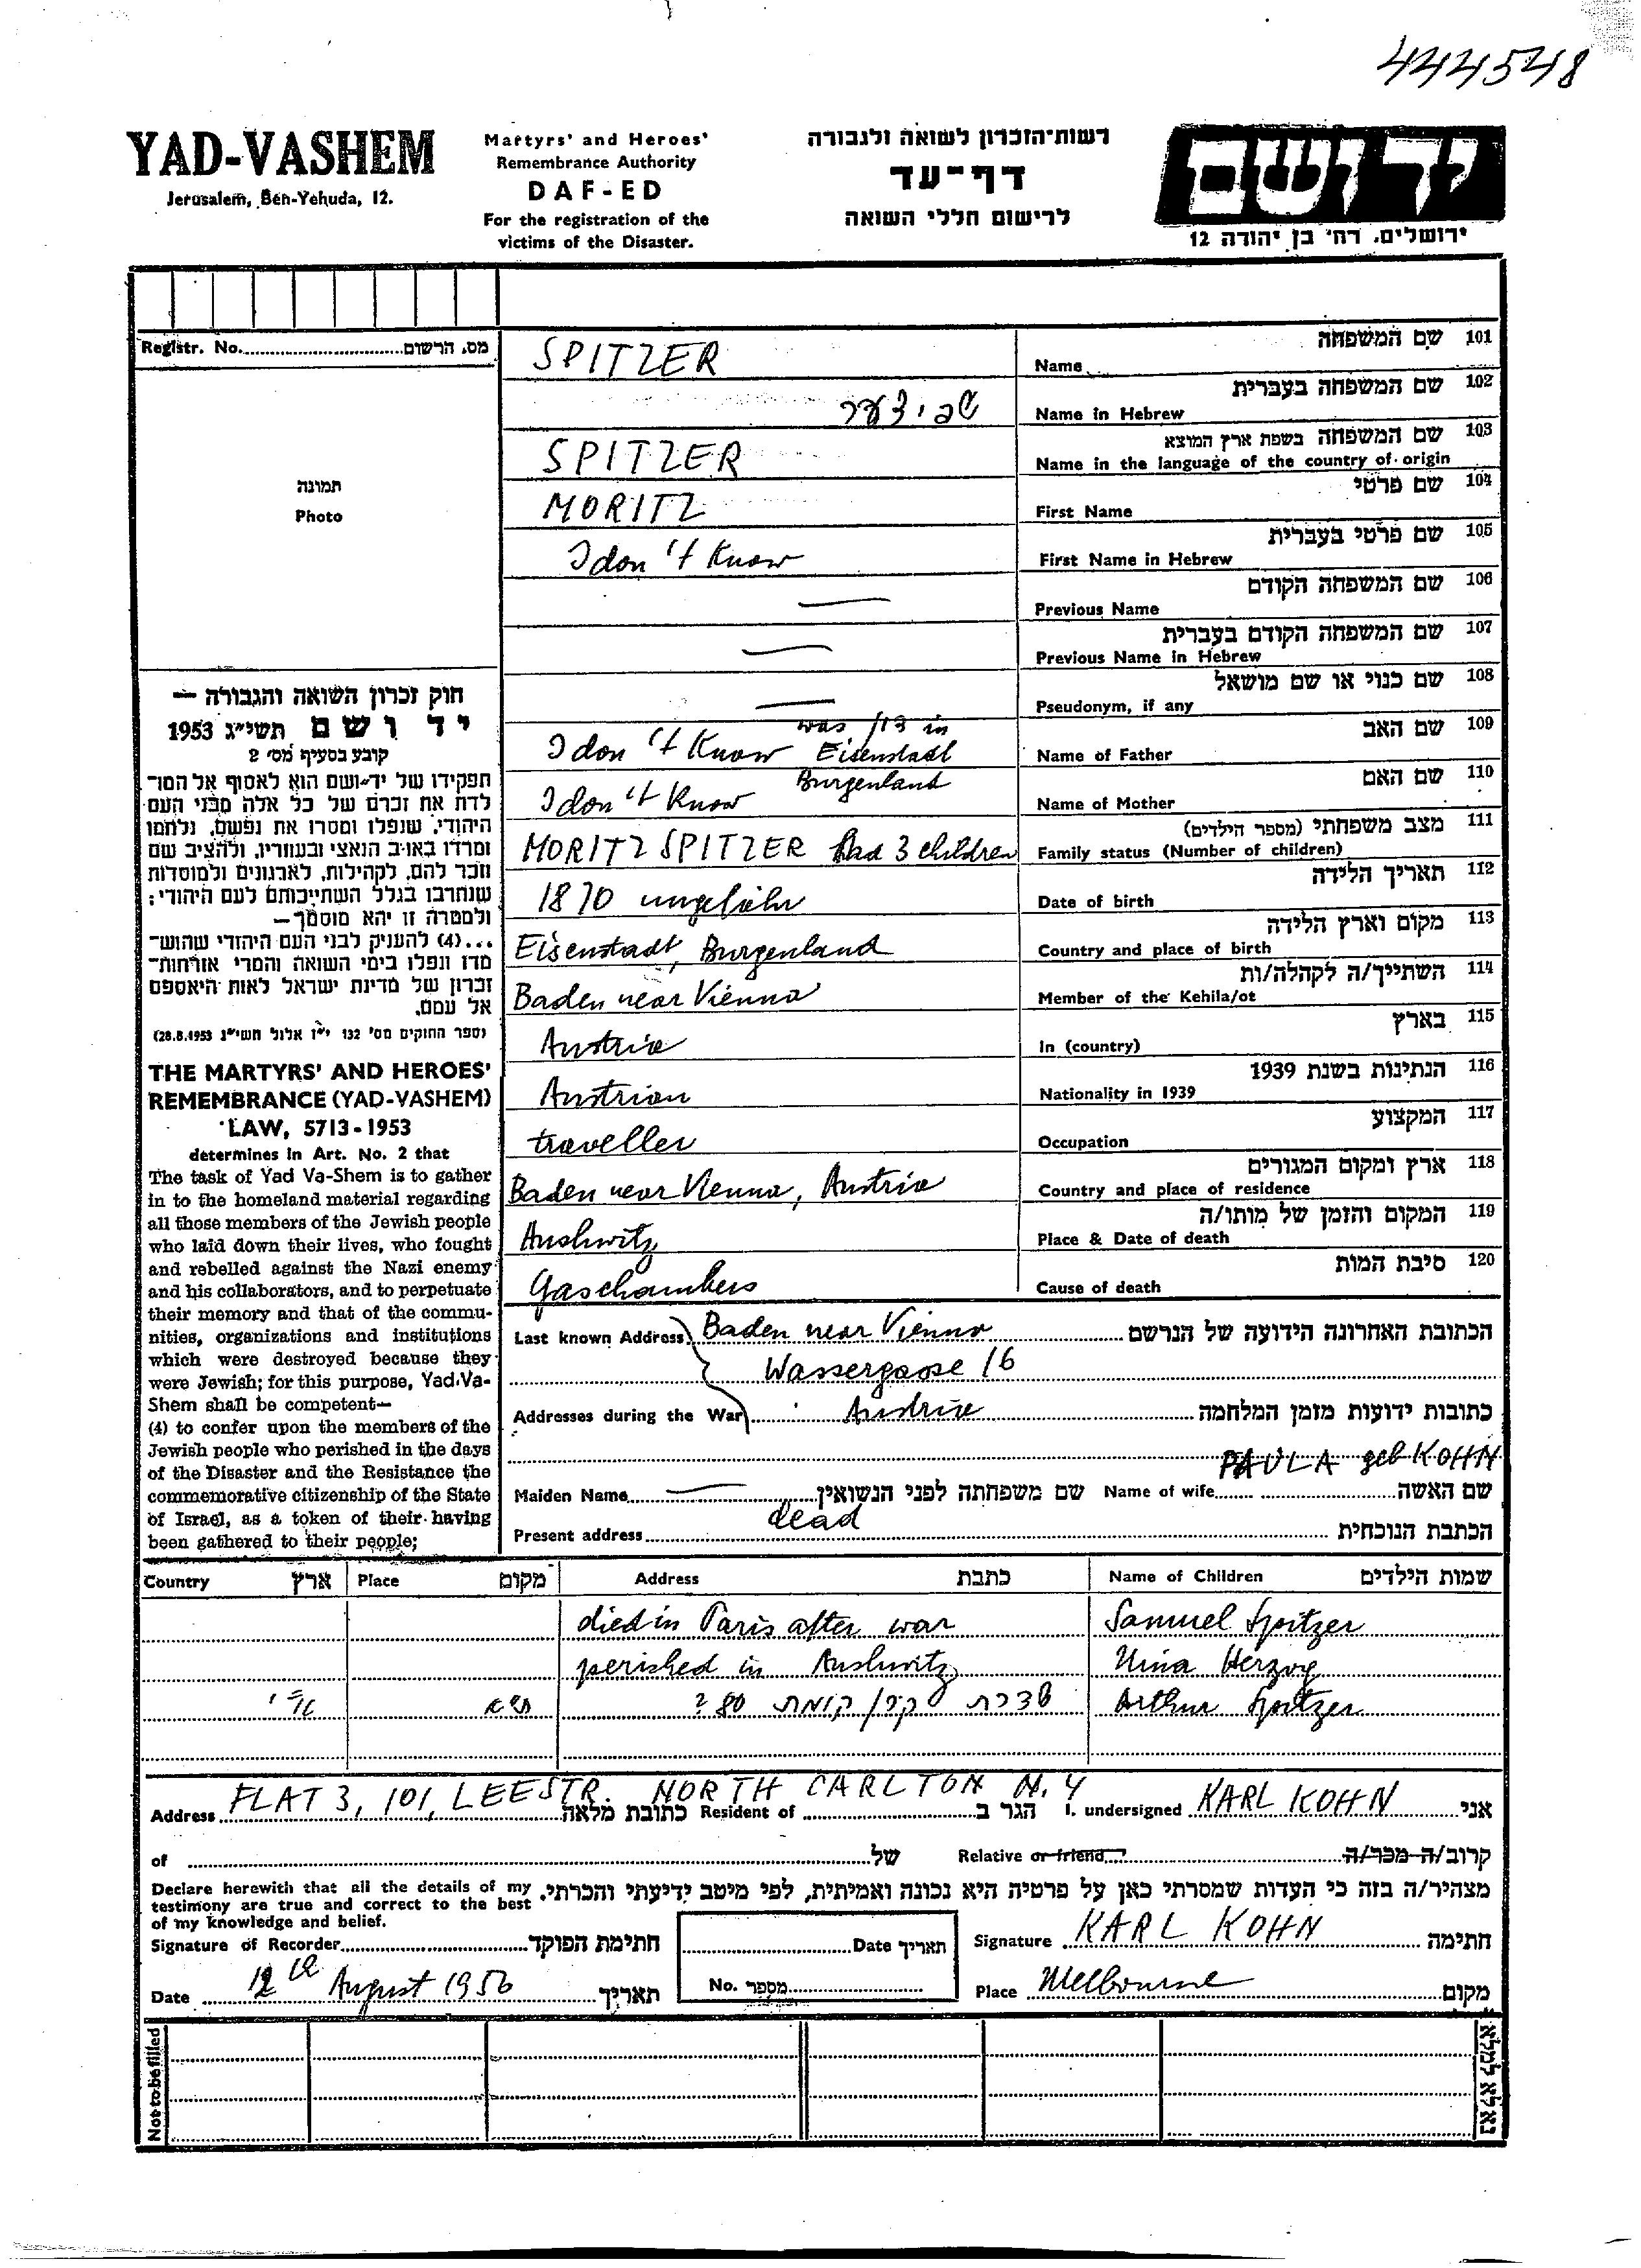 444548
YAD-VASHEM
Jerusalem, Ben-Yehuda, 12.
Martyrs' and Heroes'
Remembrance Authority
DAF-ED
For the registration of the
victims of the Disaster.
רשות-הזכרון לשואה ולגבורה
דף-עד
לרישום חללי השואה
יד ושם
ירושלים, רח' בן יהודה 12
Registr. No. מס. הרשום
תמונה
Photo
SPITZER
שם המשפחה 101
Name
שפיצער
שם המשפחה בעברית 102
Name in Hebrew
SPITZER
שם המשפחה בשפת ארץ המוצא 103
Name in the language of the country of origin
MORITZ
שם פרטי 104
First Name
I don't know
שם פרטי בעברית 105
First Name in Hebrew
—
שם המשפחה הקודם 106
Previous Name
—
שם המשפחה הקודם בעברית 107
Previous Name in Hebrew
—
שם כנוי או שם מושאל 108
Pseudonym, if any
I don't know was in Eisenstadt
Burgenland
שם האב 109
Name of Father
I don't know
שם האם 110
Name of Mother
MORITZ SPITZER had 3 children
מצב משפחתי (מספר הילדים) 111
Family status (Number of children)
1870 ungefähr
תאריך הלידה 112
Date of birth
Eisenstadt, Burgenland
מקום וארץ הלידה 113
Country and place of birth
Baden near Vienna
השתייך/ה לקהלה/ות 114
Member of the Kehila/ot
Austria
בארץ 115
In (country)
Austrian
הנתינות בשנת 1939 116
Nationality in 1939
traveller
המקצוע 117
Occupation
Baden near Vienna, Austria
ארץ ומקום המגורים 118
Country and place of residence
Aushwitz
המקום והזמן של מותו/ה 119
Place & Date of death
Gaschambers
סיבת המות 120
Cause of death
חוק זכרון השואה והגבורה —
יד ושם תשי"ג 1953
קובע בסעיף מס' 2
תפקידו של יד-ושם הוא לאסוף אל המו־
לדת את זכרם של כל אלה מבני העם
היהודי, שנפלו ומסרו את נפשם, נלחמו
ומרדו באויב הנאצי ובעוזריו, ולהציב שם
וזכר להם, לקהילות, לארגונים ולמוסדות
שנחרבו בגלל השתייכותם לעם היהודי;
ולמטרה זו יהא מוסמך—
...(4) להעניק לבני העם היהודי שהוש־
מדו ונפלו בימי השואה והמרי אזרחות־
זכרון של מדינת ישראל לאות היאספם
אל עמם.
(ספר החוקים מס' 132 י"ז אלול תשי"ג 28.8.1953)
THE MARTYRS' AND HEROES'
REMEMBRANCE (YAD-VASHEM)
LAW, 5713-1953
determines in Art. No. 2 that
The task of Yad Va-Shem is to gather
in to the homeland material regarding
all those members of the Jewish people
who laid down their lives, who fought
and rebelled against the Nazi enemy
and his collaborators, and to perpetuate
their memory and that of the commu-
nities, organizations and institutions
which were destroyed because they
were Jewish; for this purpose, Yad-Va-
Shem shall be competent—
(4) to confer upon the members of the
Jewish people who perished in the days
of the Disaster and the Resistance the
commemorative citizenship of the State
of Israel, as a token of their having
been gathered to their people;
Last known Address Baden near Vienna הכתובת האחרונה הידועה של הנרשם
Wassergasse 16
Addresses during the War Austria כתובות ידועות מזמן המלחמה
PAULA geb KOHN
Maiden Name — שם משפחתה לפני הנשואין Name of wife שם האשה
Present address dead הכתבת הנוכחית
Country ארץ Place מקום Address כתבת Name of Children שמות הילדים
died in Paris after war Samuel Spitzer
perished in Aushwitz Nina Herzog
80 Arthur Spitzer
Address FLAT 3, 101, LEESTR. NORTH CARLTON N.4 כתובת מלאה Resident of הגר ב I. undersigned KARL KOHN אני
of של Relative or friend קרוב/ה מכר/ה
Declare herewith that all the details of my
testimony are true and correct to the best
of my knowledge and belief.
מצהיר/ה בזה כי העדות שמסרתי כאן על פרטיה היא נכונה ואמיתית, לפי מיטב ידיעתי והכרתי.
Signature of Recorder חתימת הפוקד
Date תאריך
Signature KARL KOHN חתימה
Date 12th August 1956 תאריך
No. מספר
Place Melbourne מקום
Not to be filled
נא לא למלא